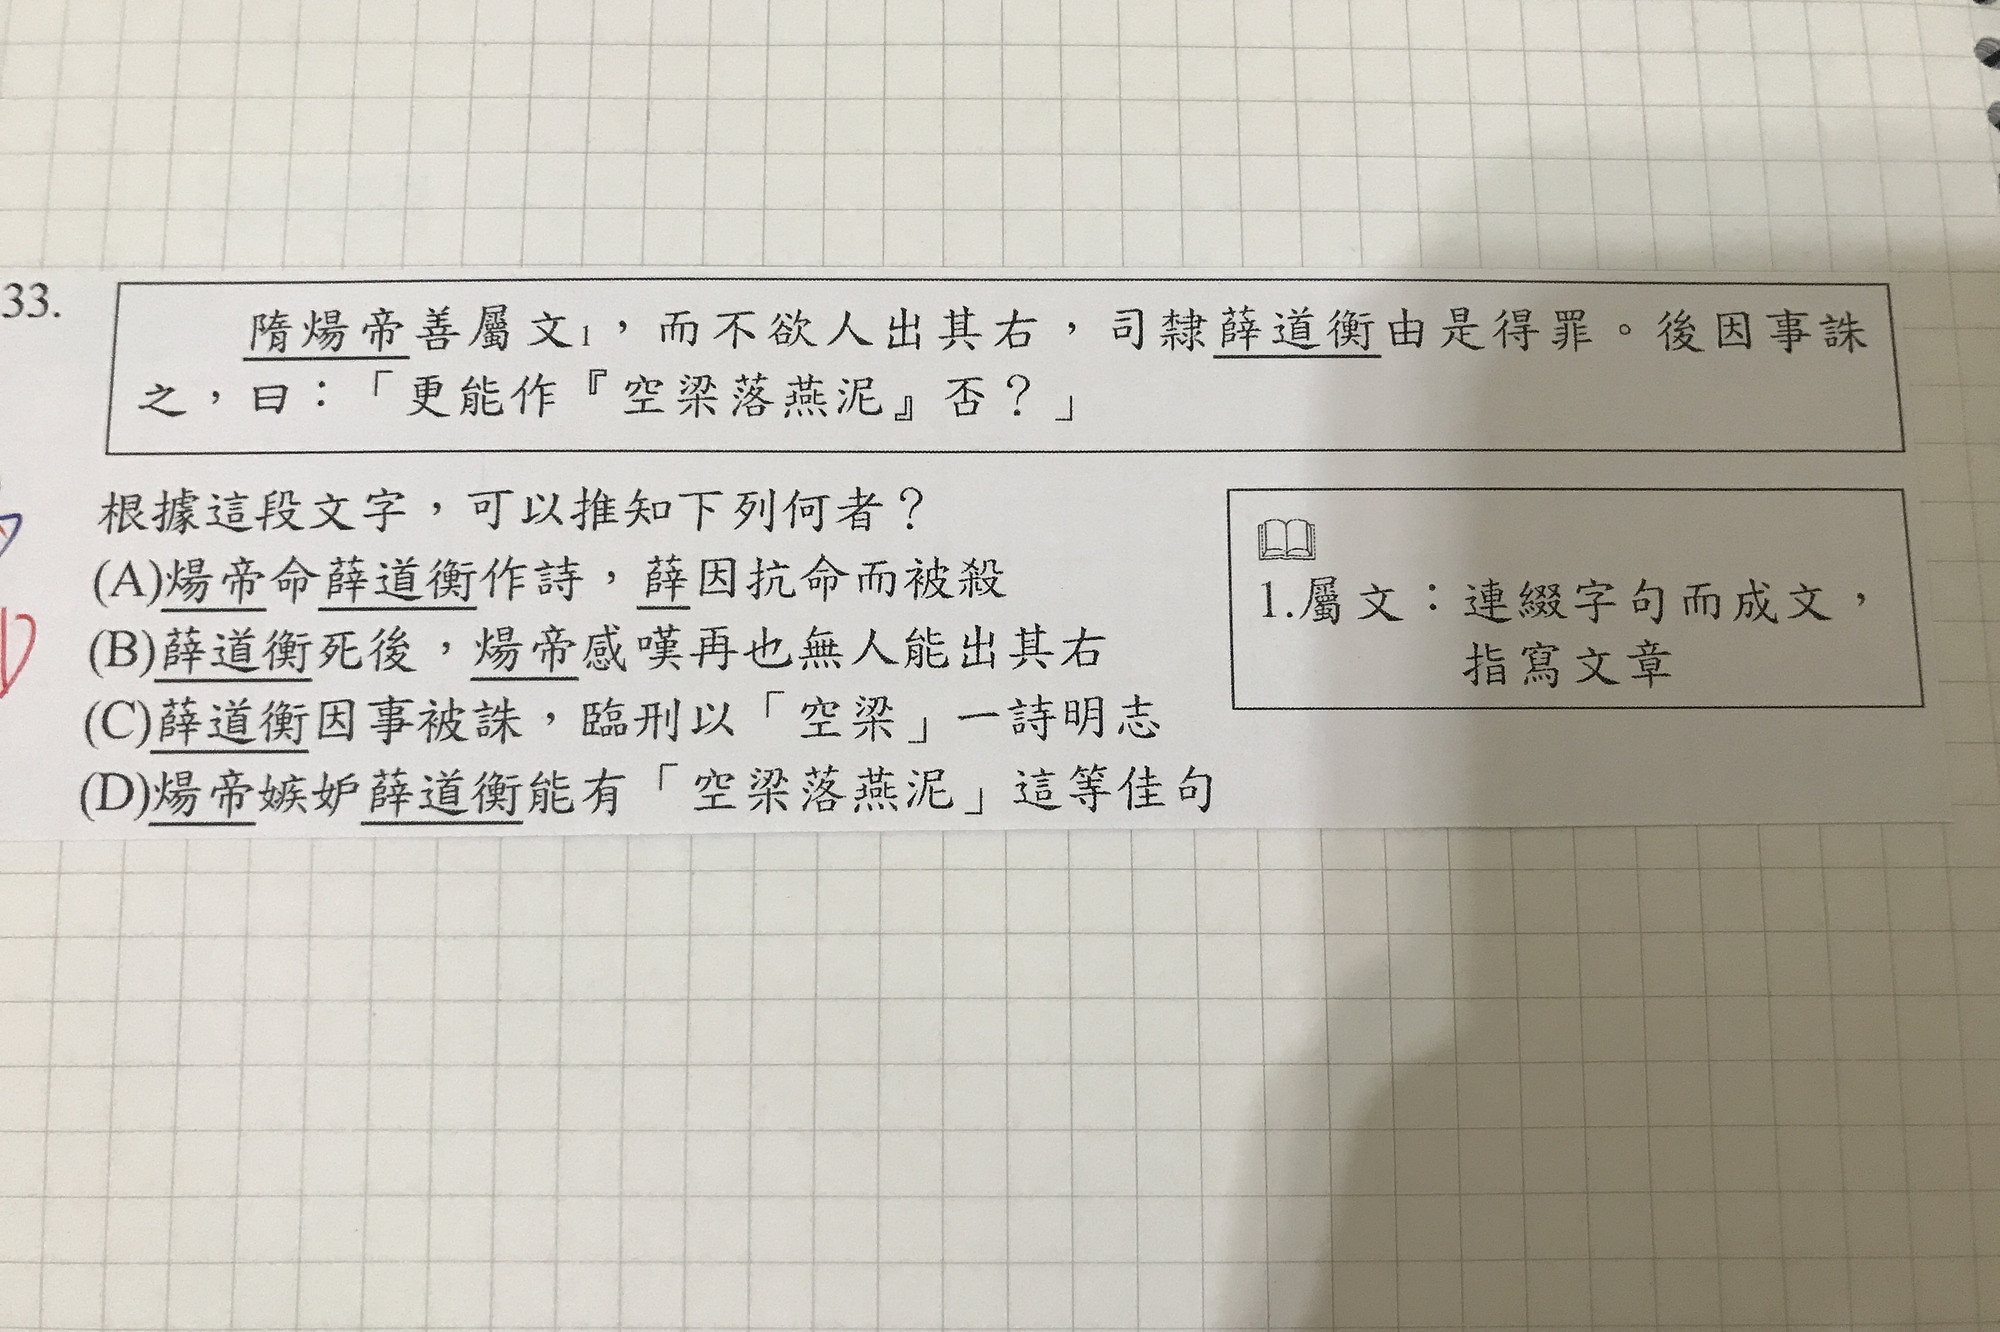 33.
隋煬帝善屬文1，而不欲人出其右，司隸薛道衡由是得罪。後因事誅
之，曰：「更能作『空梁落燕泥』否？」
根據這段文字，可以推知下列何者？
(A)煬帝命薛道衡作詩，薛因抗命而被殺
(B)薛道衡死後，煬帝感嘆再也無人能出其右
(C)薛道衡因事被誅，臨刑以「空梁」一詩明志
(D)煬帝嫉妒薛道衡能有「空梁落燕泥」這等佳句
1.屬文：連綴字句而成文，
指寫文章